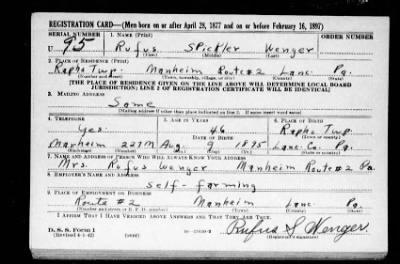 REGISTRATION CARD—(Men born on or after April 28, 1877 and on or before February 16, 1897)
SERIAL NUMBER 1. NAME (Print) ORDER NUMBER
U 95 Rufus Spickler Wenger
(First) (Middle) (Last)
2. PLACE OF RESIDENCE (Print)
Rapho Twp. Manheim Route #2 Lanc. Pa.
(Number and street) (Town, township, village, or city) (County) (State)
[THE PLACE OF RESIDENCE GIVEN ON THE LINE ABOVE WILL DETERMINE LOCAL BOARD
JURISDICTION; LINE 2 OF REGISTRATION CERTIFICATE WILL BE IDENTICAL]
3. MAILING ADDRESS
Same
(Mailing address if other than place indicated on line 2. If same insert word same)
4. TELEPHONE 5. AGE IN YEARS 6. PLACE OF BIRTH
Yes. 46 Rapho Twp.
DATE OF BIRTH (Town or county)
Manheim 227M Aug. 9 1895 Lanc. Co. Pa.
(Exchange) (Number) (Mo.) (Day) (Yr.) (State or country)
7. NAME AND ADDRESS OF PERSON WHO WILL ALWAYS KNOW YOUR ADDRESS
Mrs. Rufus Wenger Manheim Route #2 Pa.
8. EMPLOYER'S NAME AND ADDRESS
Self - farming
9. PLACE OF EMPLOYMENT OR BUSINESS
Route #2 Manheim Lanc. Pa.
(Number and street or R. F. D. number) (Town) (County) (State)
I AFFIRM THAT I HAVE VERIFIED ABOVE ANSWERS AND THAT THEY ARE TRUE.
D. S. S. Form 1
(Revised 4-1-42) (over) Rufus S. Wenger